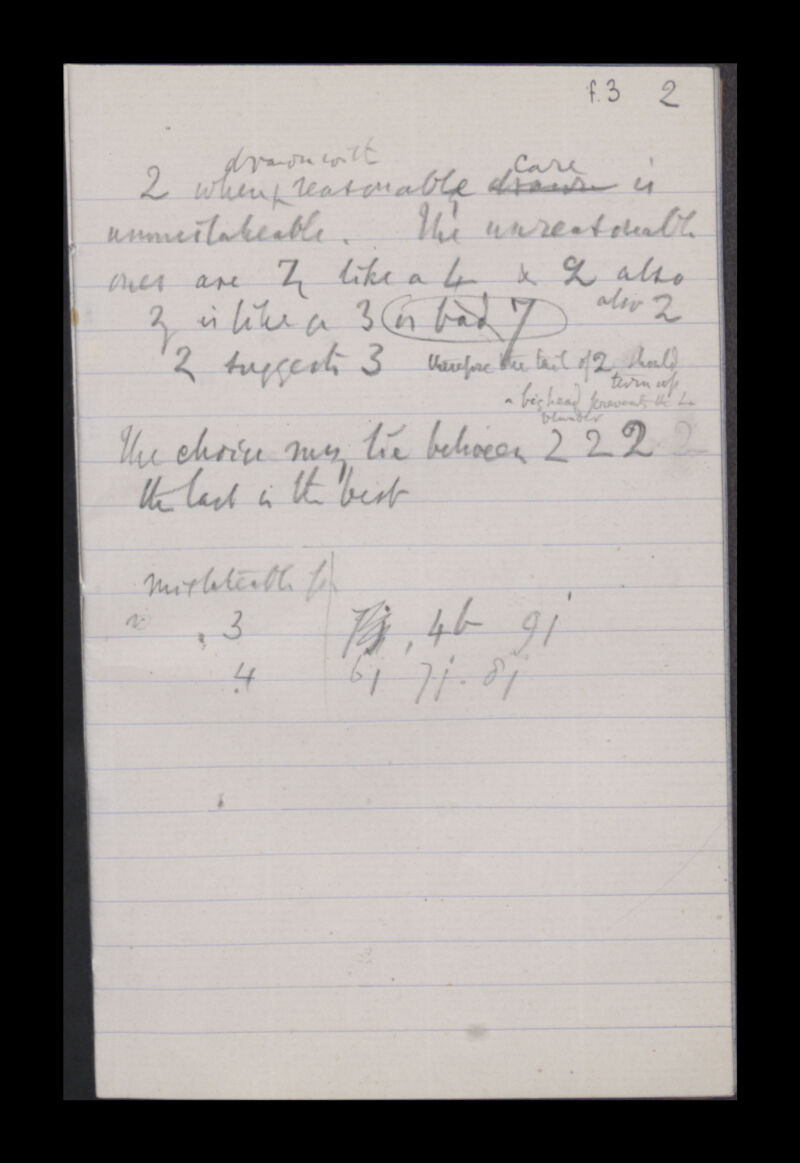 f.3 2
drawn with care
2 when reasonable drawn is
unmistakeable. The unreasonable
ones are 2 like a 4 & 2 also
2 is like a 3 (or bad 7) also 2
2 suggests 3 therefore the tail of 2 should
turn up
a big head prevents the
blunder
The choice may lie between 2 2 2 2
the last is the best
mistakeable for
3 , 4 9
4 6 7 8